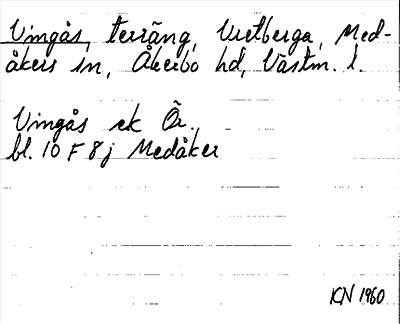 Vingås, terräng, Vretberga, Med-
åkers sn, Åkerbo hd, Västm. l.
Vingås ek Ör.
bl. 10 F 8 j Medåker
KN 1960